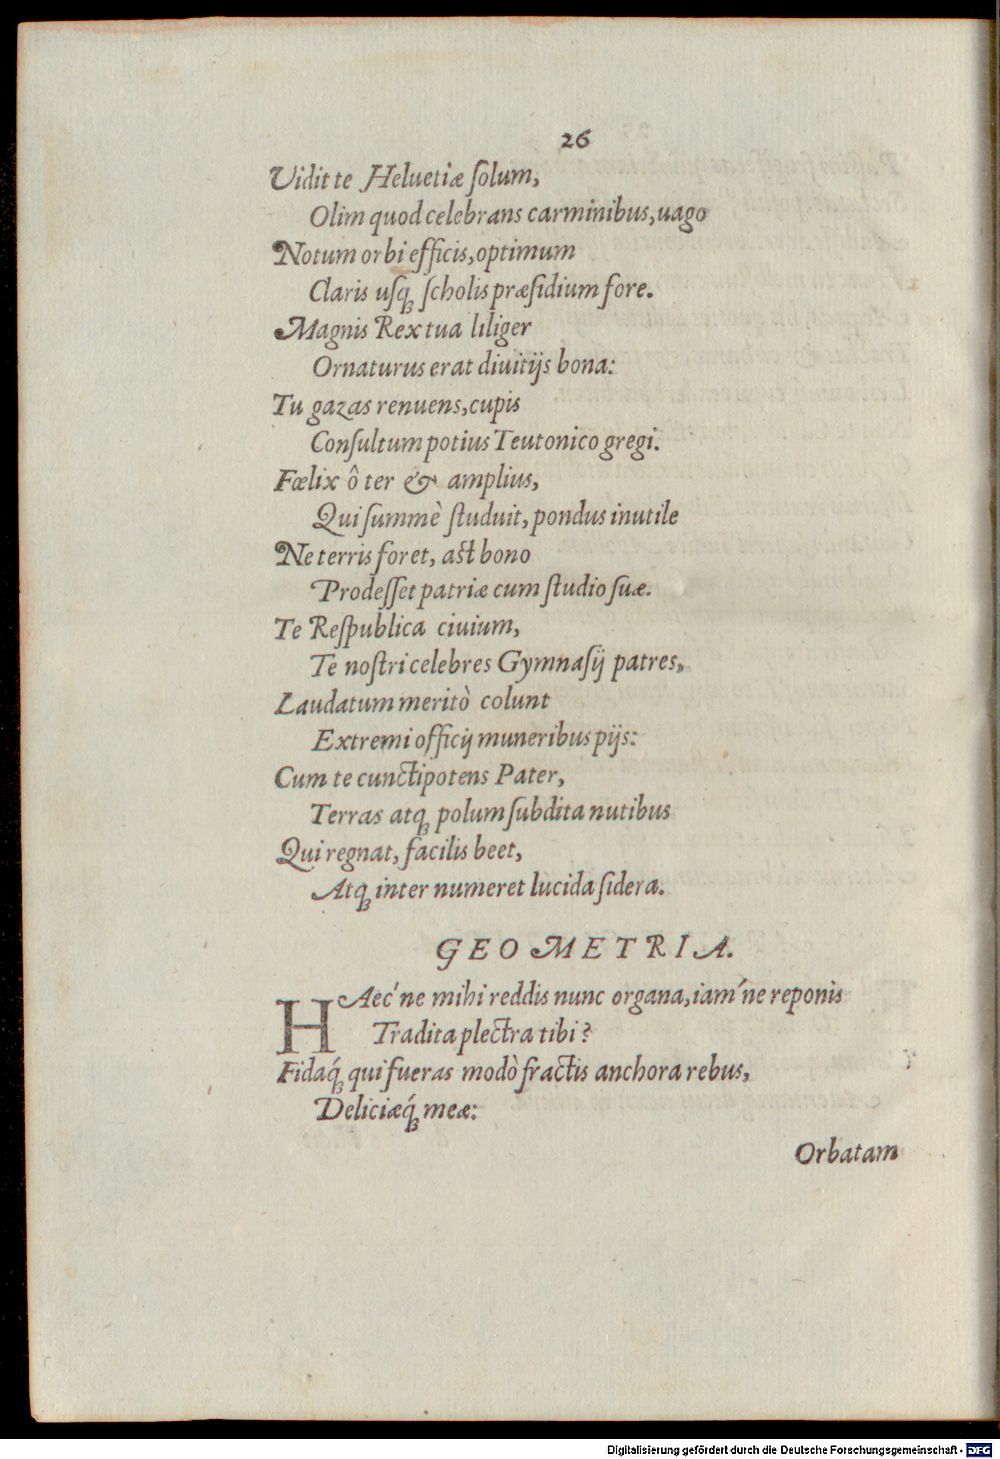 26
Vidit te Heluetiæ ſolum,
Olim quod celebrans carminibus, uago
Notum orbi efficis, optimum
Claris uſq; ſcholis præſidium fore.
Magnis Rex tua liliger
Ornaturus erat diuitijs bona:
Tu gazas renuens, cupis
Conſultum potius Teutonico gregi.
Fœlix ô ter & amplius,
Qui ſummè ſtuduit, pondus inutile
Ne terris foret, aſt bono
Prodeſſet patriæ cum ſtudio ſuæ.
Te Reſpublica ciuium,
Te noſtri celebres Gymnaſij patres,
Laudatum meritò colunt
Extremi officij muneribus pijs:
Cum te cunctipotens Pater,
Terras atq; polum ſubdita nutibus
Qui regnat, facilis beet,
Atq; inter numeret lucida ſidera.
GEOMETRIA.
HAec'ne mihi reddis nunc organa, iam'ne reponis
Tradita plectra tibi?
Fidaq́; qui fueras modò fractis anchora rebus,
Deliciæq́; meæ:
Orbatam
Digitalisierung gefördert durch die Deutsche Forschungsgemeinschaft - DFG